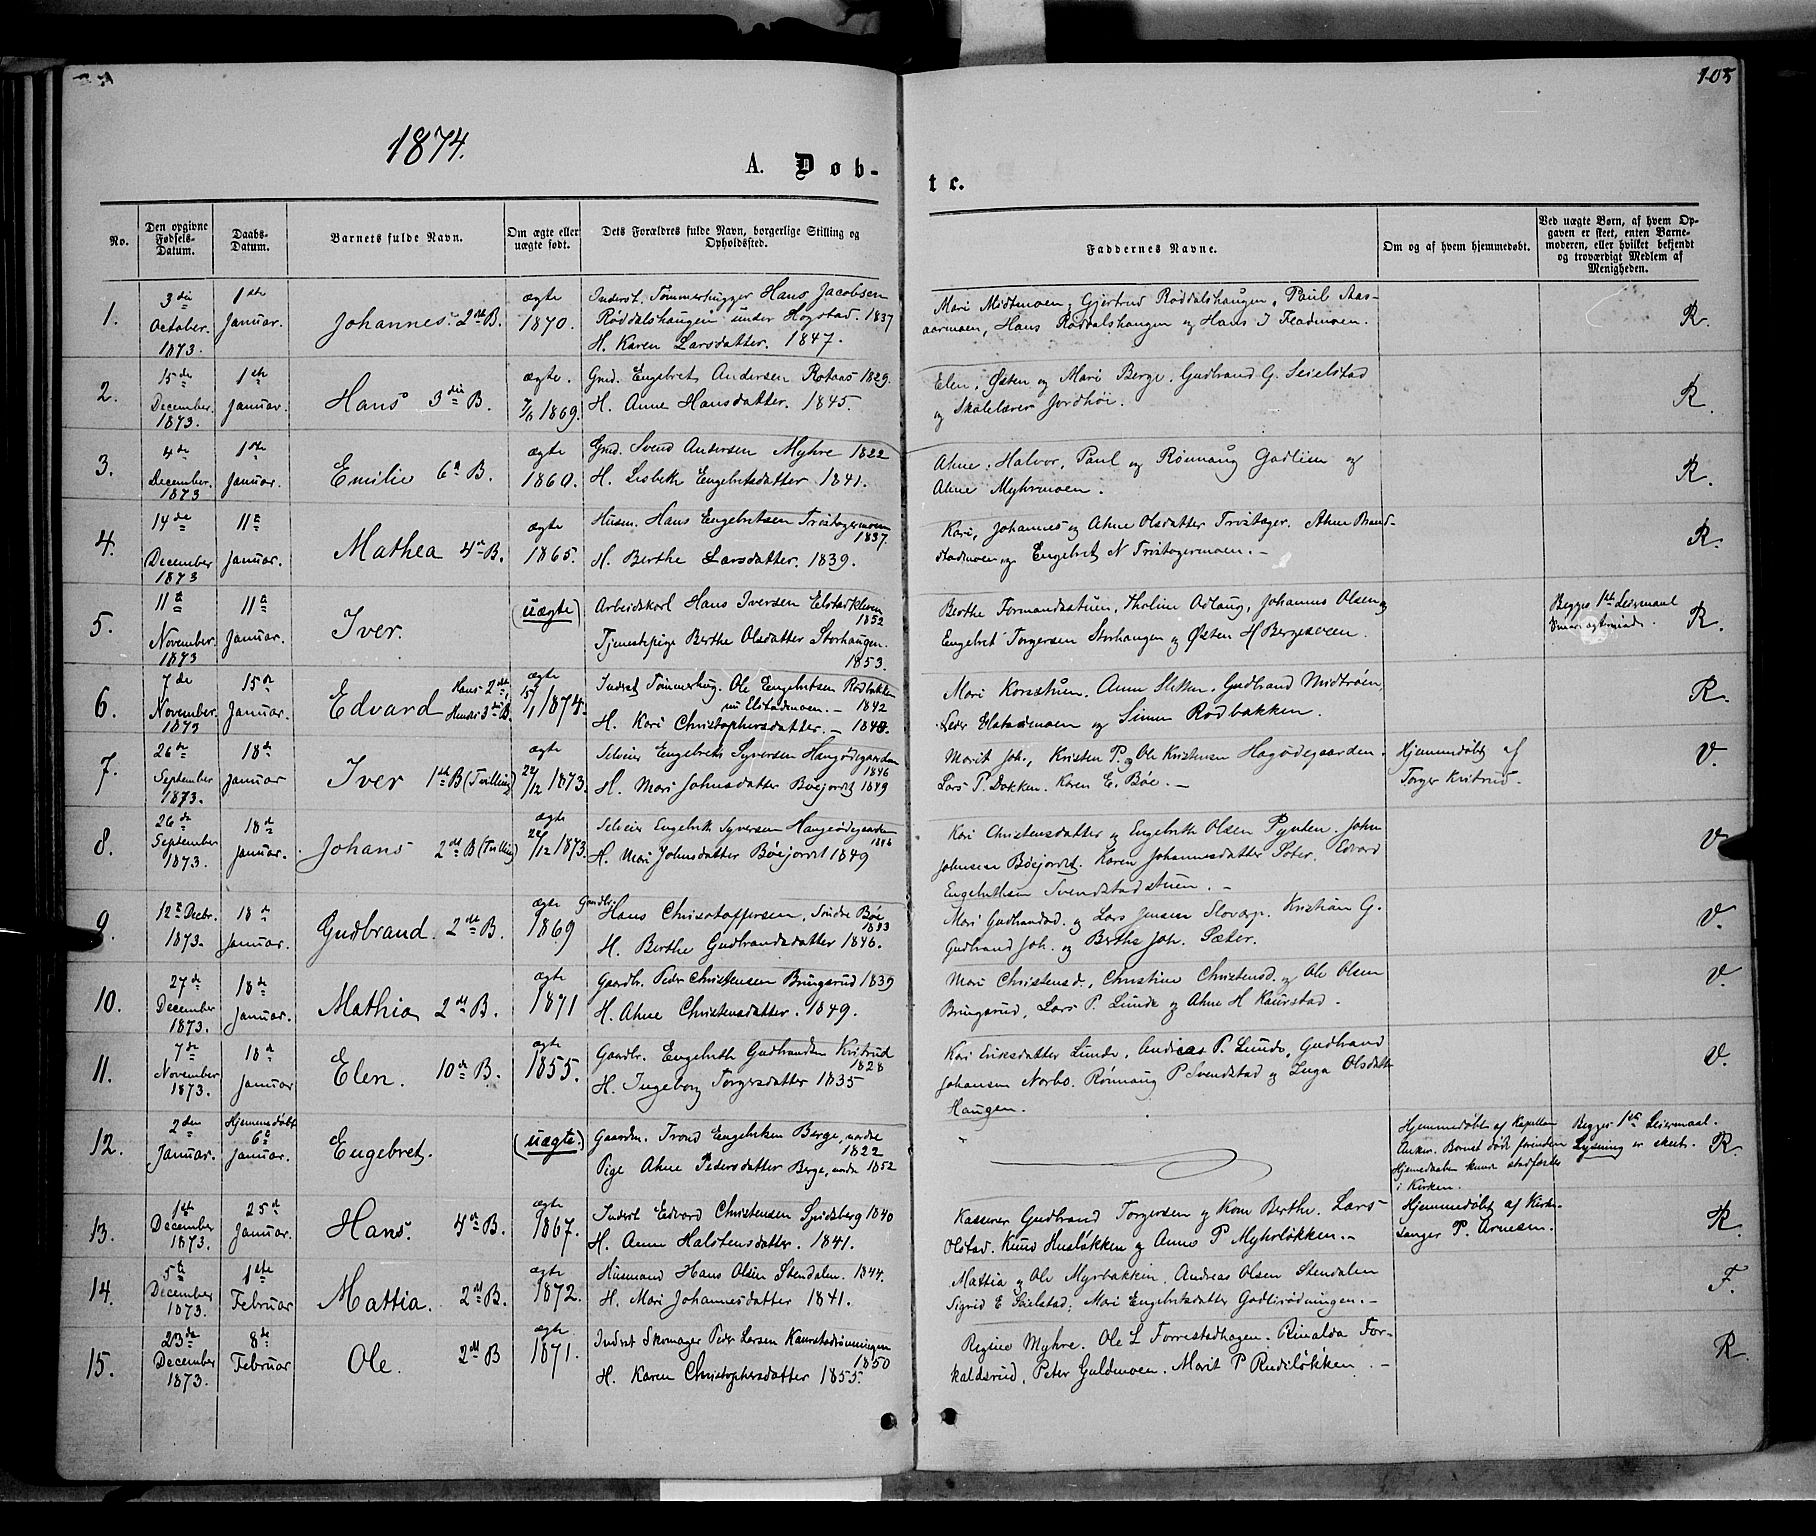 105
1874.
A. Døb-
te.
No.
Den opgivne Fødsels-Datum.
Daabs-Datum.
Barnets fulde Navn.
Om ægte eller uægte født.
Dets Forældres fulde Navn, borgerlige Stilling og Opholdssted.
Faddernes Navne.
Om og af hvem hjemmedøbt.
Ved uægte Børn, af hvem Opgaven er skeet, enten Barnemoderen, eller hvilket bekjendt og troværdigt Medlem af Menigheden.
1.
3die October. 1873.
1ste Januar.
Johannes. 2det B.
ægte 1870.
Inderst. Tømmerhugger Hans Jacobsen
Røddalshaugen under Hogstad. 1837
H. Karen Larsdatter. 1847.
Mari Midtmoen, Gjertrud Røddalshaugen, Paul Aas-
aarmoen, Hans Røddalshaugen og Hans J Fladmoen.
R.
2.
15de December. 1873.
1ste Januar.
Hans 3die B.
ægte. 7/6 1869.
Gmd. Engebret Andersen Rotaas 1829.
H. Anne Hansdatter. 1845.
Elen, Østen og Mari Berge. Gudbrand G. Seielstad
og Skolelærer Jordhøi.
R.
3.
4de December. 1873
1ste Januar.
Emilie 6te B.
ægte 1860.
Gmd. Svend Andersen Myhre 1822
H. Lisbeth Engebretsdatter 1841.
Ahne, Halvor, Paul og Rønnaug Gadlien og
Ahne Myhrmoen.
R.
4.
14de December 1873
11te Januar.
Mathea 4de B.
ægte 1865.
Husm. Hans Engebretsen Trøstagermoen
1837.
H. Berthe Larsdatter. 1839.
Kari, Johannes og Ahne Olsdatter Trøstager. Ahne Brand-
stadmoen og Engebret N Trøstagermoen.-
R.
5.
11te November. 1873
11te Januar.
Iver.
(uægte)
Arbeidskarl Hans Iversen Elstadkleven
1852
Tjenestepige Berthe Olsdatter Storhaugen.
1853.
Berthe Formandsstuen, Tholine Adlaug, Johannes Olsen og
Engebret Torgersen Storhaugen og Østen H Bergesveen.
Begges 1ste Leiermaal
R.
6.
7de November. 1873
15de Januar.
Edvard Hans 2det, Hendes 3die B.
ægte 5/1 1874.
Inderst, Tømmerhug. Ole Engebretsen Rødbakken
nu Elstadmoen.- 1842
H. Kari Christophersdatter.-
Mari Korsstuen, Anne Sletten. Gudbrand Midtmoen,
Peder Elstadmoen og Simen Rødbakken.
R.
7.
26de September 1873.
18de Januar
Iver 1ste B (Tvilling)
ægte 22/12 1873.
Selveier Engebreth Syversen Haugødegaarden
1846
H. Mari Johnsdatter Bøejordet 1849
Marit Joh., Kristen P. og Ole Kristensen Hagødegaarden.
Lars P. Dokken. Karen E. Bøe.-
Hjemmedøbt af
Torger Kvitrud.
V.
8.
26de September 1873.
18de Januar.
Johans 2det B (Tvilling)
ægte 22/12 1873.
Selveier Engebreth Syversen Haugeødegaarden
1846
H. Mari Johnsdatter Bøejordet 1849
Kari Christensdatter og Engebreth Olsen Pynten. John
Johnsen Bøejordet. Karen Johannesdatter Sæter. Edvard
Engebrethsen Svendstadstuen.-
V.
9.
12te Decbr. 1873.
18de Januar.
Gudbrand. 2det B.
ægte 1869
Gaardbr. Hans Christoffersen, Søndre Bøe
1843
H. Berthe Gudbrandsdatter 1846.
Mari Gudbrandsd. og Lars Jensen Slovarp. Kristian G.
Gudbrand Joh. og Berthe Joh. Sæter.
V.
10.
27de December 1873.
18de Januar.
Mathia 2det B.
ægte 1871
Gaardbr. Peder Christensen Bringsrud 1839
H. Ahne Christensdatter. 1849.
Mari Christensd., Christine Christensd. og Ole Olsen
Bringsrud, Lars P. Lunde og Ahne H Kaurstad.
V.
11.
7de November 1873.
18de Januar
Elen. 10de B.
ægte 1855.
Gaardbr. Engebreth Gudbrandsen Kvitrud
1828
H. Ingeborg Torgersdatter 1835
Kari Eriksdatter Lunde, Andreas P. Lunde, Gudbrand
Johansen Norbo. Rønnaug P Svendstad og Inga Olsdatter
Haugen.
V.
12.
2den Januar.
Hjemmedøbt 6te Januar
Engebret.
(uægte.)
Gaardm. Trond Engebretsen Berge, nordre
1822
Pige Ahne Pedersdatter Berge, nordre 1852
Hjemmedøbt af Kapellan
Anker. Barnet døde forinden
Hjemedaaben kunde stadfæstes
i Kirken.
Begges 1ste Leiermaal.
Lysning er skeet.
R.
13.
1ste December 1873.
25de Januar.
Hans. 4de B.
ægte 1867.
Inderst Edvard Christensen Spidsberg 1840
H. Anne Halstensdatter. 1841.
Kasserer Gudbrand Torgersen og Kone Berthe. Lars
Olstad. Knud Husløkken og Anne P Myhrløkken.-
Hjemmedøbt af Kirke-
sanger P. Arnesen.
R.
14.
5te December 1873.
1ste Februar
Mattia. 2det B.
ægte 1872.
Husmand Hans Olsen Stendalen. 1844.
H. Mari Johannesdatter 1841.
Mattia og Ole Myrbakken. Andreas Olsen Stendalen
Sigrid E Seielstad; Mari Engebretsdatter Godlirødningen.-
F.
15.
23de December 1873.
8de Februar
Ole. 2det B
ægte 1871.
Inderst Skomager Peder Larsen Kaurstadrønningen
1850
H. Karen Christophersdatter 1855.
Regine Myhre. Ole L Forrestadhagen. Rinalda For-
kaldsrud, Peter Guldmoen. Marit P Rudiløkken.-
R.